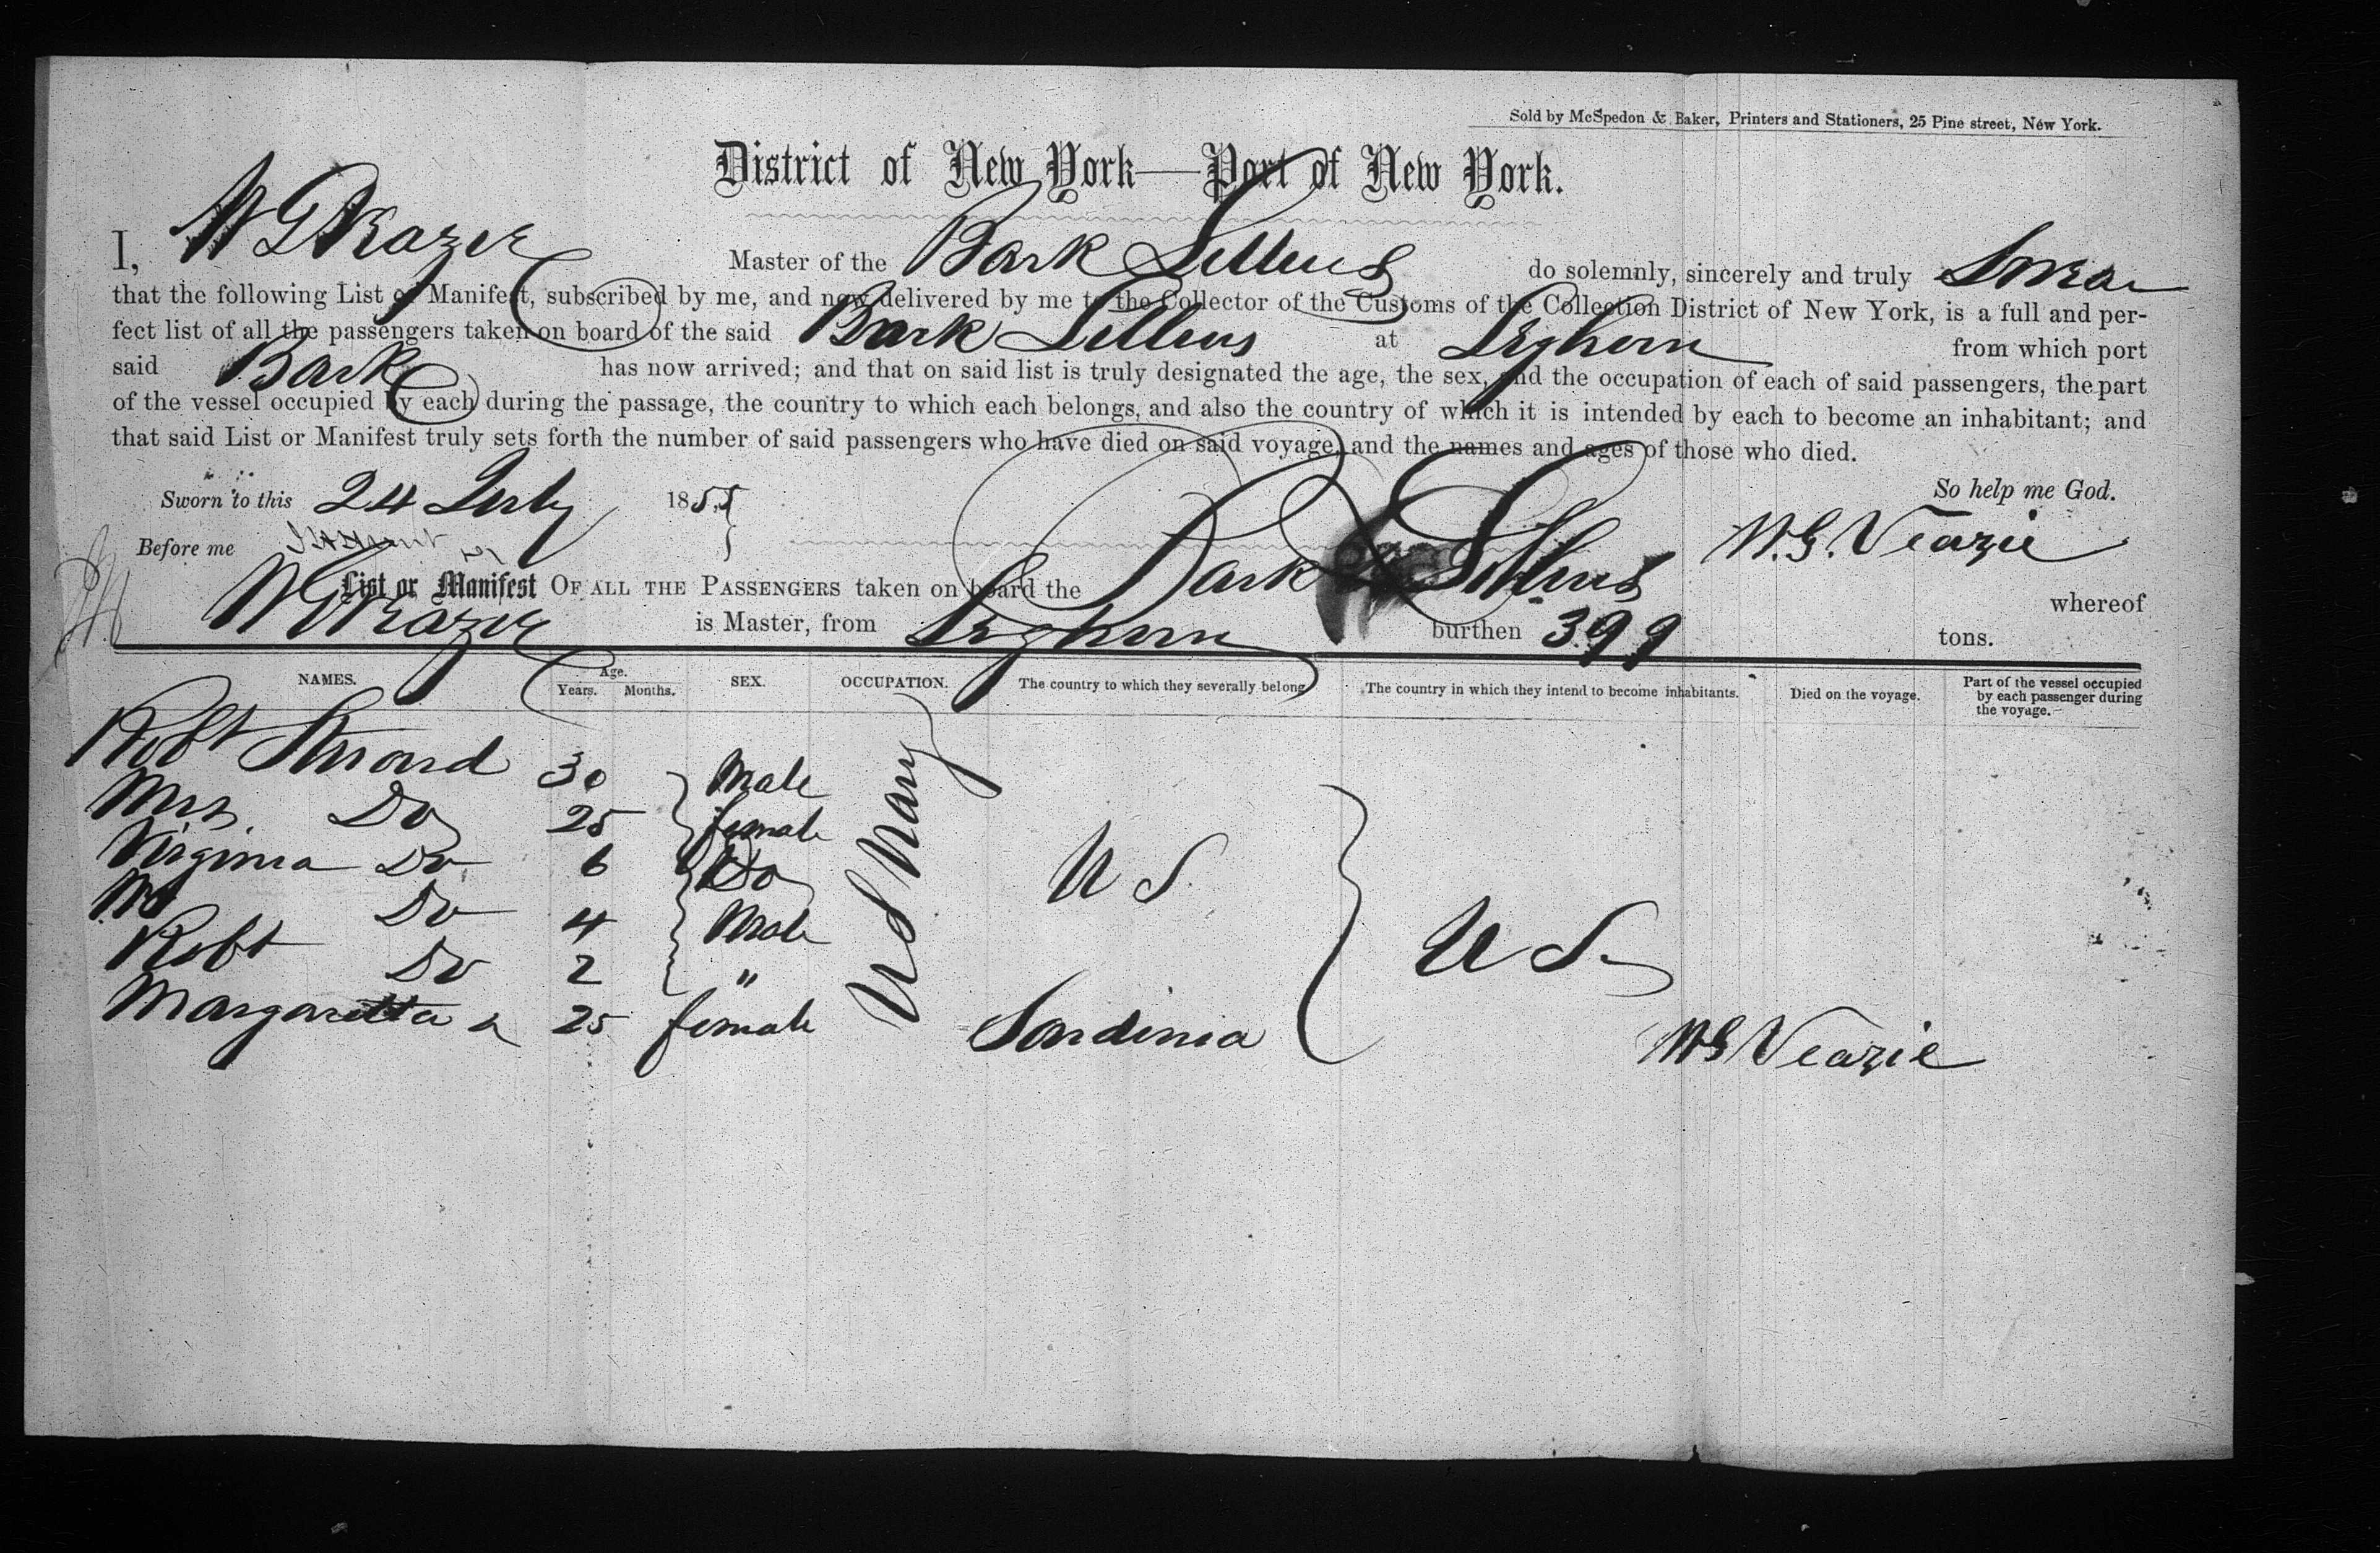 Sold by McSpedon & Baker, Printers and Stationers, 25 Pine street, New York.
District of New York—Port of New York.
I, W G Veazie Master of the Bark do solemnly, sincerely and truly Swear
that the following List or Manifest, subscribed by me, and now delivered by me to the Collector of the Customs of the Collection District of New York, is a full and per-
fect list of all the passengers taken on board of the said Bark at Leghorn from which port
said Bark has now arrived; and that on said list is truly designated the age, the sex, and the occupation of each of said passengers, the part
of the vessel occupied by each during the passage, the country to which each belongs, and also the country of which it is intended by each to become an inhabitant; and
that said List or Manifest truly sets forth the number of said passengers who have died on said voyage, and the names and ages of those who died.
So help me God.
Sworn to this 24 July 1855
W. G. Veazie
Before me
List or Manifest OF ALL THE PASSENGERS taken on board the Bark whereof
W G Veazie is Master, from Leghorn burthen 399 tons.
NAMES. Age. Years. Months. SEX. OCCUPATION. The country to which they severally belong. The country in which they intend to become inhabitants. Died on the voyage. Part of the vessel occupied by each passenger during the voyage.
Robt 30 Male U S Navy U S U S
Mrs. Do 25 female
Virginia Do 6 Do
Do 4 Male
Robt Do 2 "
Margaretta 25 female Sardinia
W G Veazie